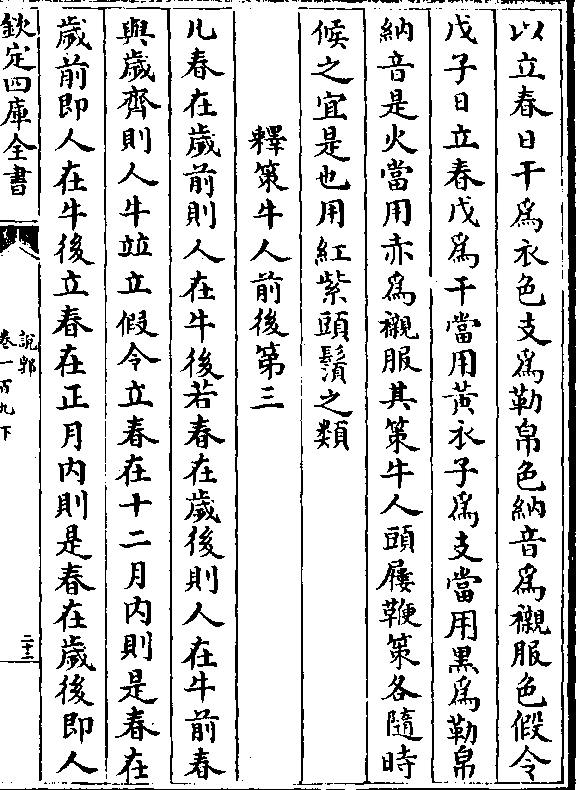 以立春日干為衣色支為勒帛色納音為襯服色假令
戊子日立春戊為干當用黃衣子為支當用黑為勒帛
納音是火當用赤為襯服其策牛人頭屨鞭策各隨時
候之宜是也用紅紫頭鬚之類
釋策牛人前後第三
凡春在歲前則人在牛後若春在歲後則人在牛前春
與歲齊則人牛竝立假令立春在十二月內則是春在
歲前即人在牛後立春在正月內則是春在歲後即人
欽定四庫全書
說郛
卷一百九下
二十二